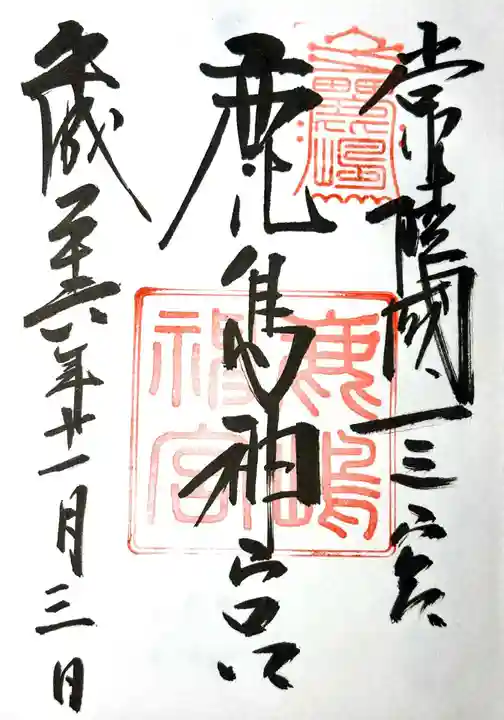 常陸國一之宮
鹿島神宮
平成二十六年十一月三日
鹿嶋
神宮